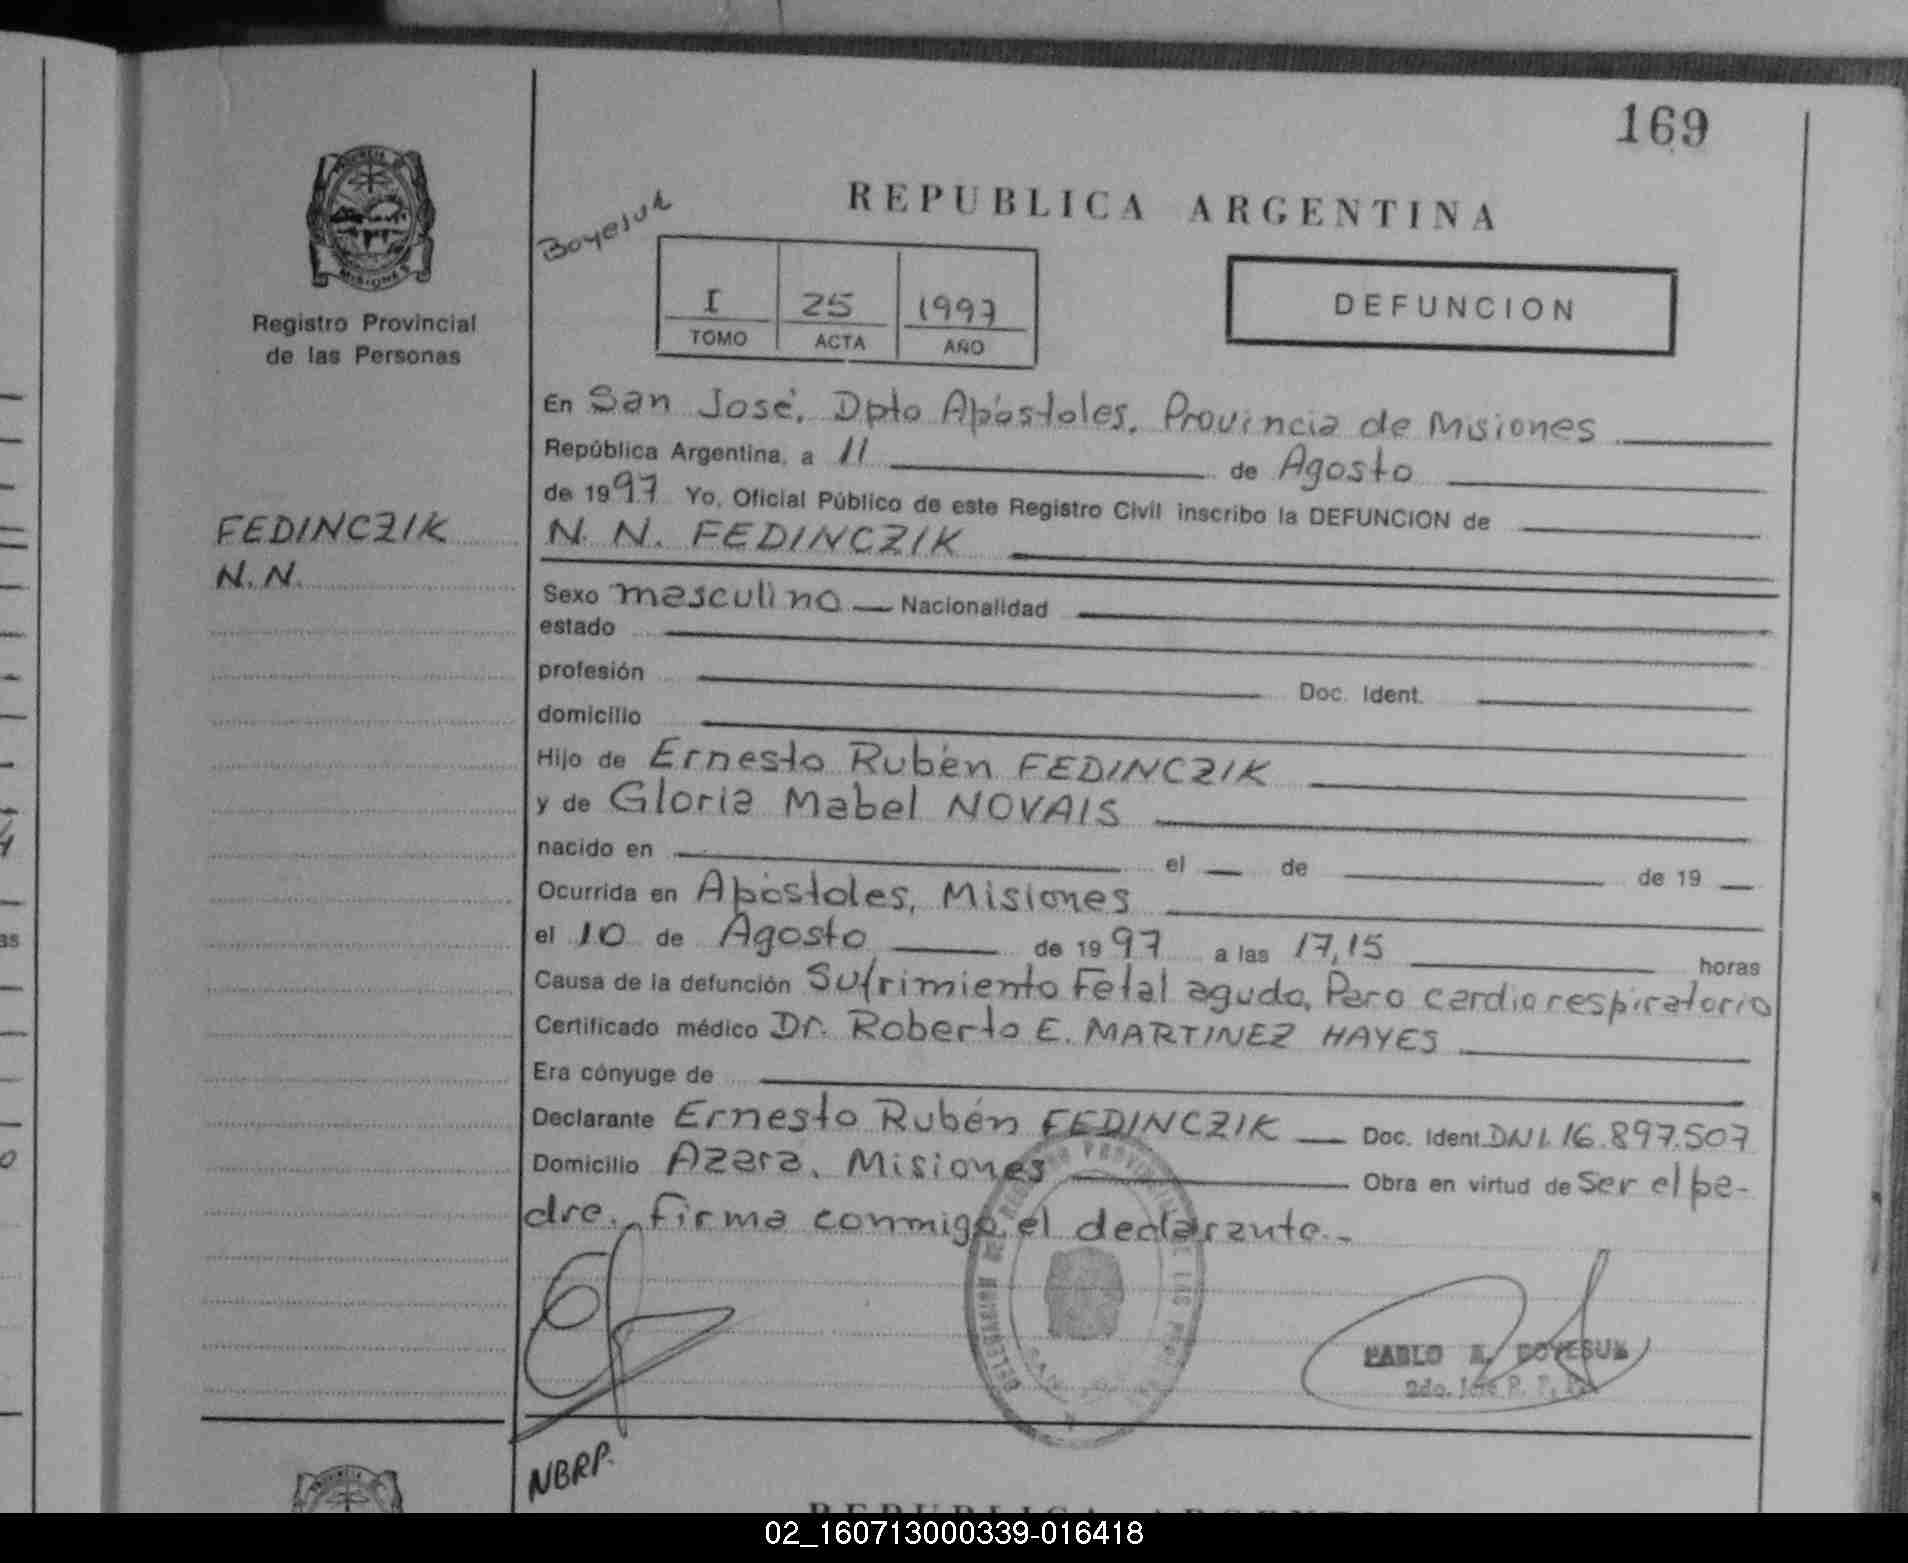 169
REPUBLICA ARGENTINA
Boyesuk
PROVINCIA DE
MISIONES
Registro Provincial
de las Personas
I 25 1997
TOMO ACTA AÑO
DEFUNCION
En San José, Dpto Apóstoles, Provincia de Misiones
República Argentina, a 11 de Agosto
de 1997 Yo, Oficial Público de este Registro Civil inscribo la DEFUNCION de
FEDINCZIK
N.N.
N. N. FEDINCZIK
Sexo masculino — Nacionalidad
estado
profesión Doc. Ident.
domicilio
Hijo de Ernesto Rubén FEDINCZIK
y de Gloria Mabel NOVAIS
nacido en el — de de 19 —
Ocurrida en Apóstoles, Misiones
el 10 de Agosto de 1997 a las 17,15 horas
Causa de la defunción Sufrimiento Fetal agudo, Paro cardiorespiratorio
Certificado médico Dr. Roberto E. MARTINEZ HAYES
Era cónyuge de
Declarante Ernesto Rubén FEDINCZIK — Doc. Ident. DNI. 16.897.507
Domicilio Azara, Misiones Obra en virtud de Ser el pa-
dre. firma conmigo el declarante.-
PABLO A. BOYESUK
2do. Jefe R. P.
NBRP.
REPUBLICA ARGENTINA
02_160713000339-016418